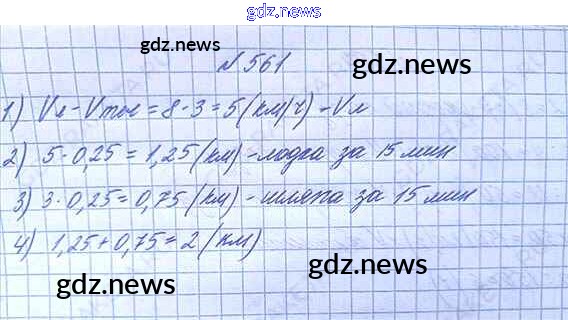 gdz.news
gdz.news
gdz.news
№ 561
1) Vл - Vтеч = 8 - 3 = 5 (км/ч) - Vл
2) 5 · 0,25 = 1,25 (км) - лодка за 15 мин
3) 3 · 0,25 = 0,75 (км) - шляпа за 15 мин
4) 1,25 + 0,75 = 2 (км)
gdz.news
gdz.news